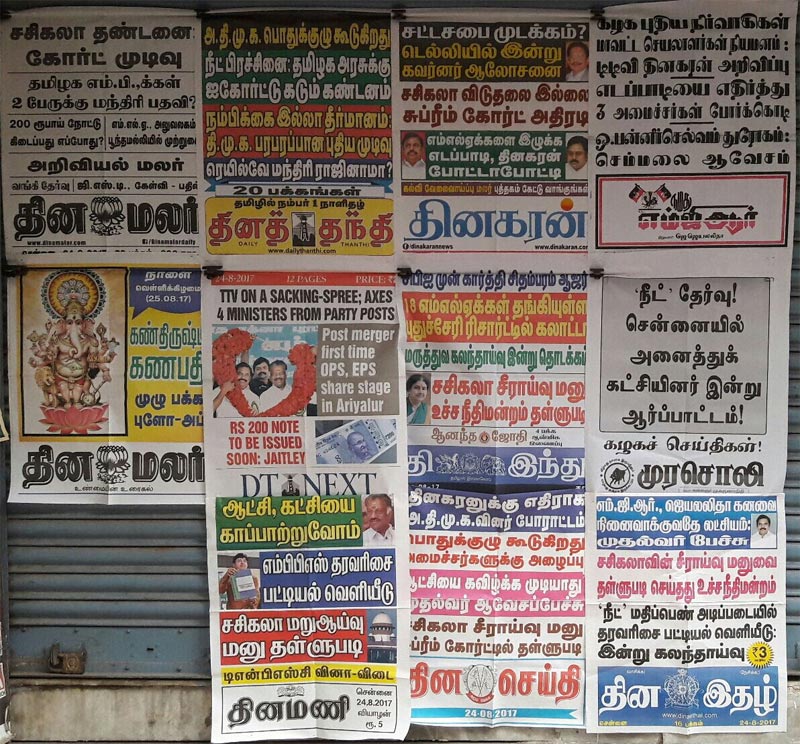 சசிகலா தண்டனை:
கோர்ட் முடிவு
தமிழக எம்.பி.,க்கள்
2 பேருக்கு மந்திரி பதவி?
200 ரூபாய் நோட்டு
கிடைப்பது எப்போது?
எம்.எல்.ஏ., அலுவலகம்
பூந்தமல்லியில் முற்றுகை
அறிவியல் மலர்
வங்கி தேர்வு
ஜி.எஸ்.டி., கேள்வி - பதில்
தின மலர்
www.dinamalar.com
அ.தி.மு.க. பொதுக்குழு கூடுகிறது
நீட் பிரச்சினை: தமிழக அரசுக்கு
ஐகோர்ட்டு கடும் கண்டனம்
நம்பிக்கை இல்லா தீர்மானம்:
தி.மு.க. பரபரப்பான புதிய முடிவு
ரெயில்வே மந்திரி ராஜினாமா?
20 பக்கங்கள்
தமிழில் நம்பர் 1 நாளிதழ்
தினத் தந்தி
DAILY THANTHI
www.dailythanthi.com
சட்டசபை முடக்கம்?
டெல்லியில் இன்று
கவர்னர் ஆலோசனை
சசிகலா விடுதலை இல்லை
சுப்ரீம் கோர்ட் அதிரடி
எம்எல்ஏக்களை இழுக்க
எடப்பாடி, தினகரன்
போட்டாபோட்டி
கல்வி வேலைவாய்ப்பு மலர் புத்தகம் கேட்டு வாங்குங்கள்
தினகரன்
dinakarannews
www.dinakaran.com
கழக புதிய நிர்வாகிகள்
மாவட்ட செயலாளர்கள் நியமனம் :
டிடிவி தினகரன் அறிவிப்பு
எடப்பாடியை எதிர்த்து
3 அமைச்சர்கள் போர்க்கொடி
ஓ.பன்னீர்செல்வம் துரோகம்:
செம்மலை ஆவேசம்
நமது
எம்ஜிஆர்
நாளை
வெள்ளிக்கிழமை
(25.08.17)
கண்திருஷ்டி
கணபதி
முழு பக்க
புளோ-அப்
தின மலர்
உண்மையின் உரைகல்
24-8-2017
12 PAGES
PRICE:
TTV ON A SACKING-SPREE; AXES
4 MINISTERS FROM PARTY POSTS
Post merger
first time
OPS, EPS
share stage
in Ariyalur
RS 200 NOTE
TO BE ISSUED
SOON: JAITLEY
DT NEXT
சிபிஐ முன் கார்த்தி சிதம்பரம் ஆஜர்
18 எம்எல்ஏக்கள் தங்கியுள்ள
புதுச்சேரி ரிசார்ட்டில் கலாட்டா
மருத்துவ கலந்தாய்வு இன்று தொடக்கம்
சசிகலா சீராய்வு மனு
உச்ச நீதிமன்றம் தள்ளுபடி
ஆனந்த ஜோதி
4 பக்க
ஆன்மிக
இணைப்பு
இந்து
'நீட்' தேர்வு!
சென்னையில்
அனைத்துக்
கட்சியினர் இன்று
ஆர்ப்பாட்டம்!
கழகச் செய்திகள்!
முரசொலி
ஆட்சி, கட்சியை
காப்பாற்றுவோம்
எம்பிபிஎஸ் தரவரிசை
பட்டியல் வெளியீடு
சசிகலா மறுஆய்வு
மனு தள்ளுபடி
டிஎன்பிஎஸ்சி வினா-விடை
தினமணி
சென்னை
24.8.2017
வியாழன்
ரூ. 5
தினகரனுக்கு எதிராக
அ.தி.மு.க.வினர் போராட்டம்
பொதுக்குழு கூடுகிறது
அமைச்சர்களுக்கு அழைப்பு
ஆட்சியை கவிழ்க்க முடியாது
முதல்வர் ஆவேசப்பேச்சு
சசிகலா சீராய்வு மனு
சுப்ரீம் கோர்ட்டில் தள்ளுபடி
தின செய்தி
24-08-2017
எம்.ஜி.ஆர்., ஜெயலலிதா கனவை
நினைவாக்குவதே லட்சியம்:
முதல்வர் பேச்சு
சசிகலாவின் சீராய்வு மனுவை
தள்ளுபடி செய்தது உச்சநீதிமன்றம்
'நீட்' மதிப்பெண் அடிப்படையில்
தரவரிசை பட்டியல் வெளியீடு:
இன்று கலந்தாய்வு
₹3
தின இதழ்
சென்னை
16 பக்கம்
24-8-2017